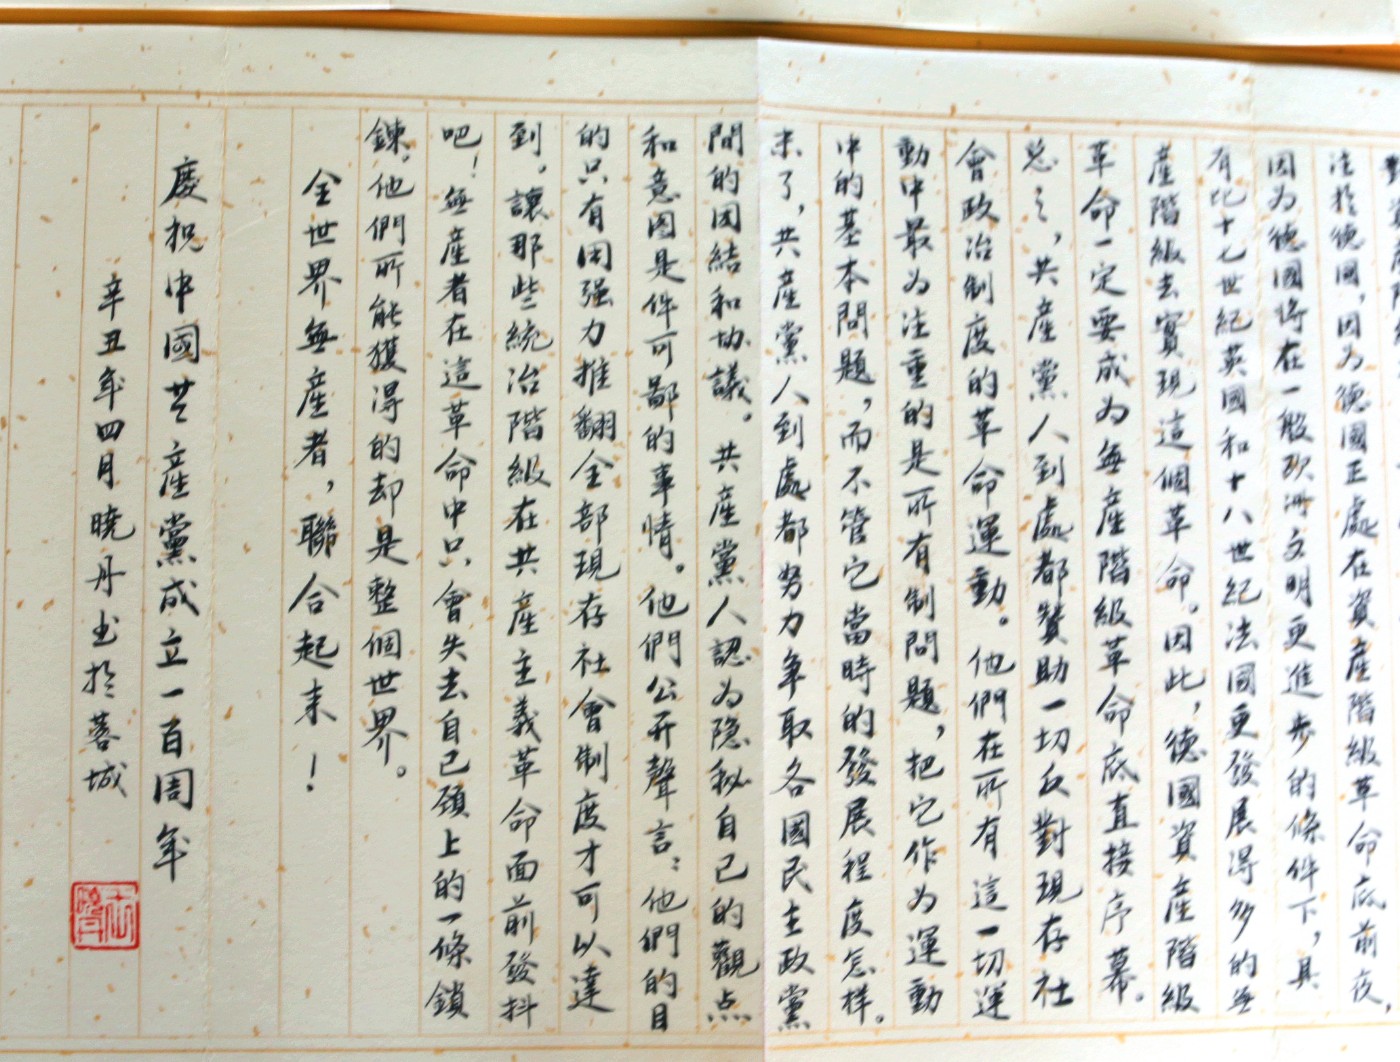 注於德國，因为德國正處在資產階級革命底前夜，
因为德國将在一般欧洲文明更進步的條件下，具
有比十七世紀英國和十八世紀法國更發展得多的無
產階級去實現這個革命。因此，德國資產階級
革命一定要成为無產階級革命底直接序幕。
总之，共產黨人到處都贊助一切反對現存社
會政治制度的革命運動。他們在所有這一切運
動中最为注重的是所有制問題，把它作为運動
中的基本問題，而不管它當時的發展程度怎样。
末了，共產黨人到處都努力争取各國民主政黨
間的团結和协議。共產黨人認为隐秘自己的觀点
和意图是件可鄙的事情。他們公开聲言：他們的目
的只有用强力推翻全部現存社會制度才可以達
到。讓那些統治階級在共產主義革命面前發抖
吧！無產者在這革命中只會失去自己頸上的一條鎖
鍊。他們所能獲得的却是整個世界。
全世界無產者，聯合起来！
慶祝中國共產黨成立一百周年
辛丑年四月曉丹书於蓉城